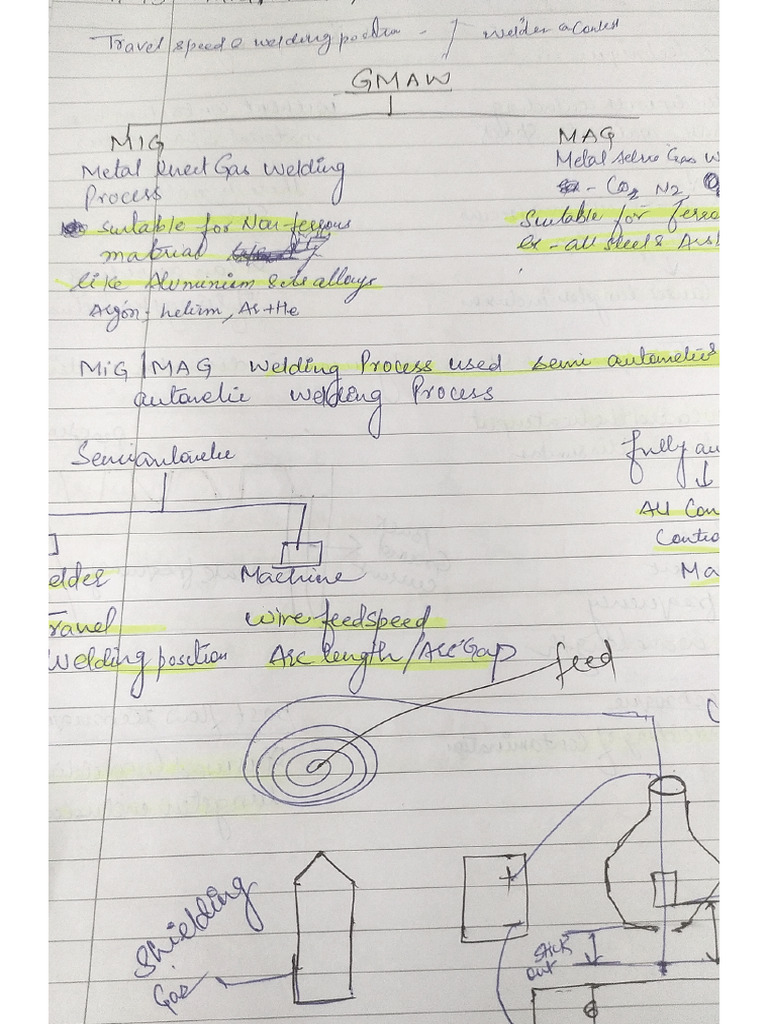 Travel speed & welding position - } welder control
GMAW
MIG
Metal Inert Gas Welding
Process
suitable for Non-ferrous
material
like Aluminium & its alloys
Argon, helium, Ar+He
MAG
Metal Active Gas W
- CO2 N2
Suitable for ferro
ex - all steel &
MIG/MAG welding Process used semi automatic
automatic welding Process
Semiautomatic
fully au
All Con
Contro
Ma
elder Machine
Travel wire feedspeed
welding position Arc length/Arc Gap
feed
Shielding
Gas
+
stick
out